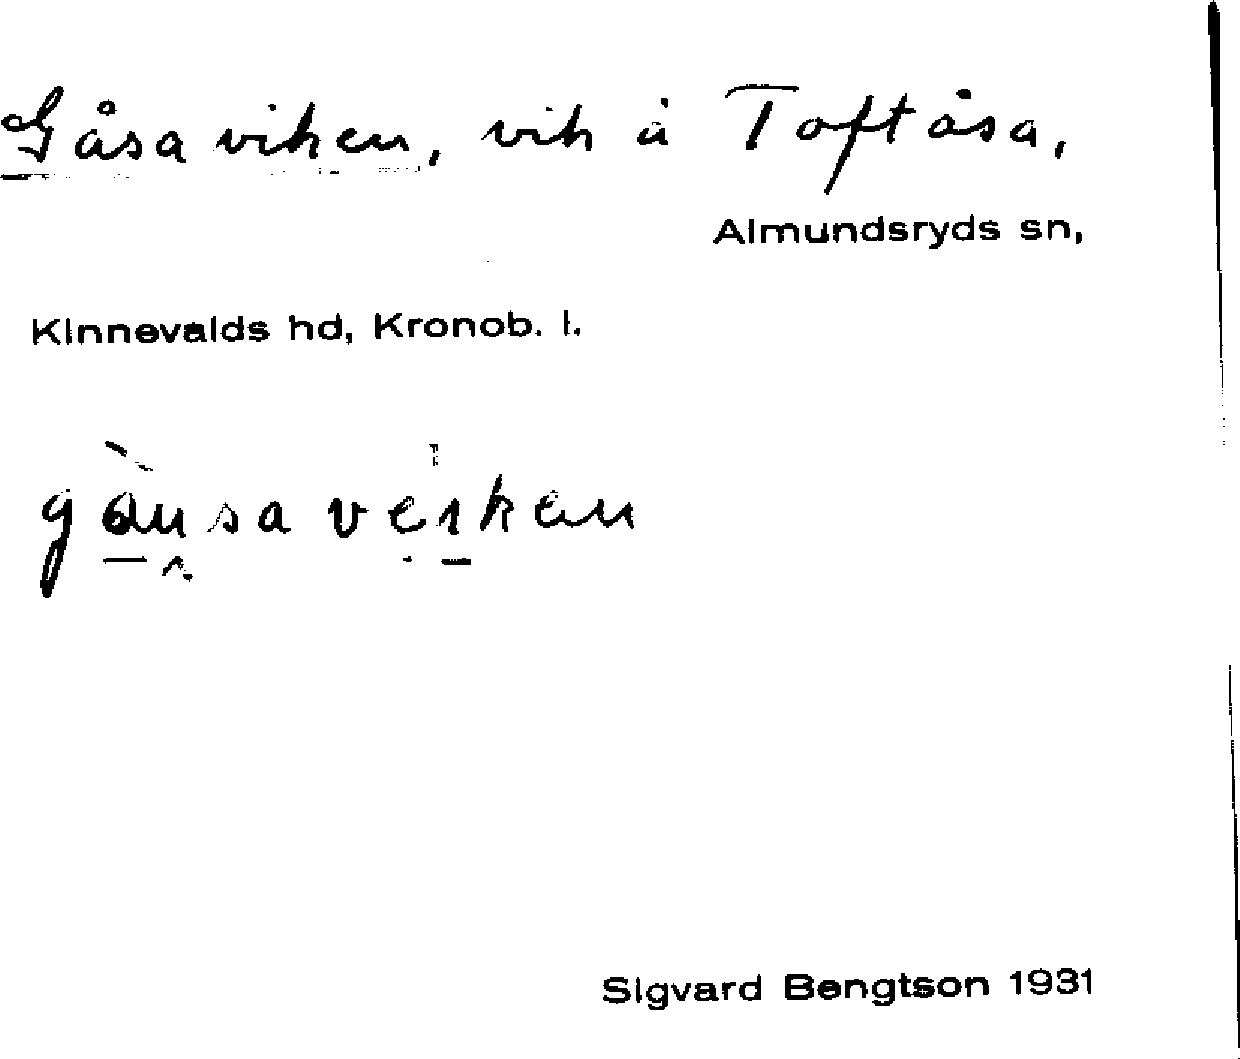 Gåsaviken, vik å Toftåsa,
Almundsryds sn,
Kinnevalds hd, Kronob. l.
gàusaveıkan
Sigvard Bengtson 1931